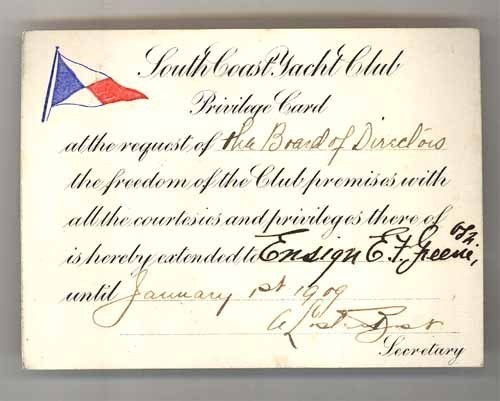 South Coast Yacht Club
Privilege Card
at the request of the Board of Directors
the freedom of the Club premises with
all the courtesies and privileges there of
is hereby extended to Ensign E.F. Greene,
until January 1st 1909
Secretary